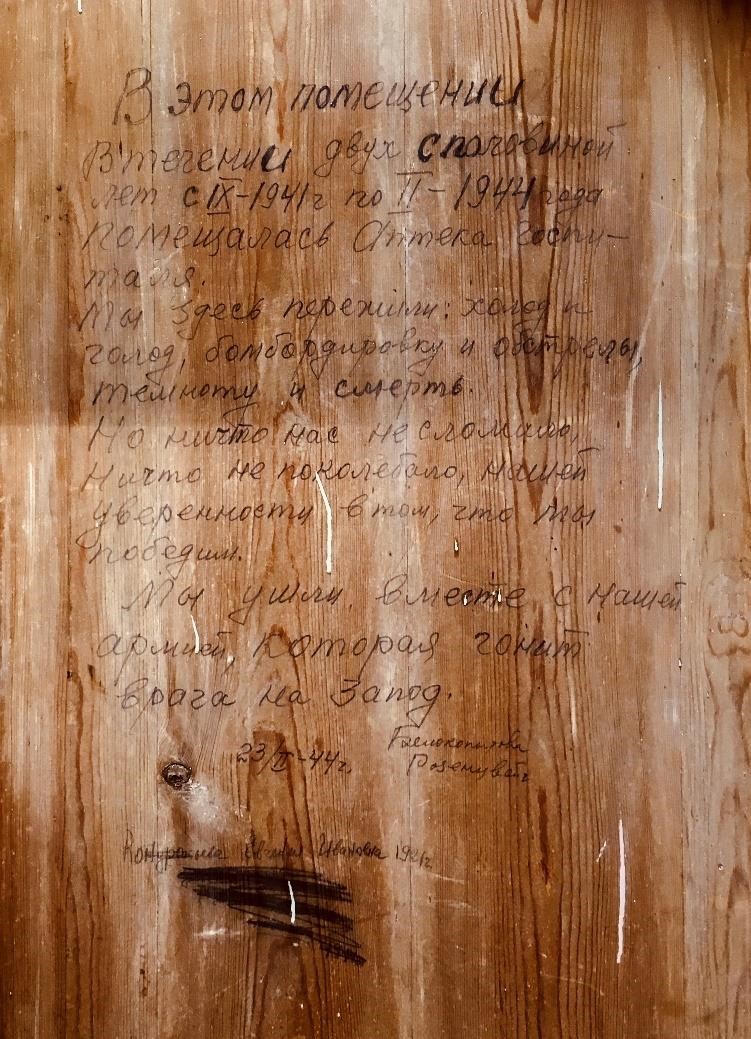 В этом помещении
В течении двух с половиной
лет с IX-1941г по II-1944 года
помещалась Аптека госпи-
таля.
Мы здесь пережили: холод и
голод, бомбардировку и обстрелы,
темноту и смерть.
Но ничто нас не сломило,
ничто не поколебало, нашей
уверенности в том, что мы
победим.
Мы ушли, вместе с нашей
армией, которая гонит
врага на Запод.
23/II-44г.
Евгения Ивановна